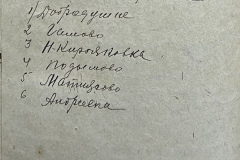 1) Добрадушне
2 Ушково
3 Н. Кирьяновка
4 Подымово
5 Матицково
6 Андреевка